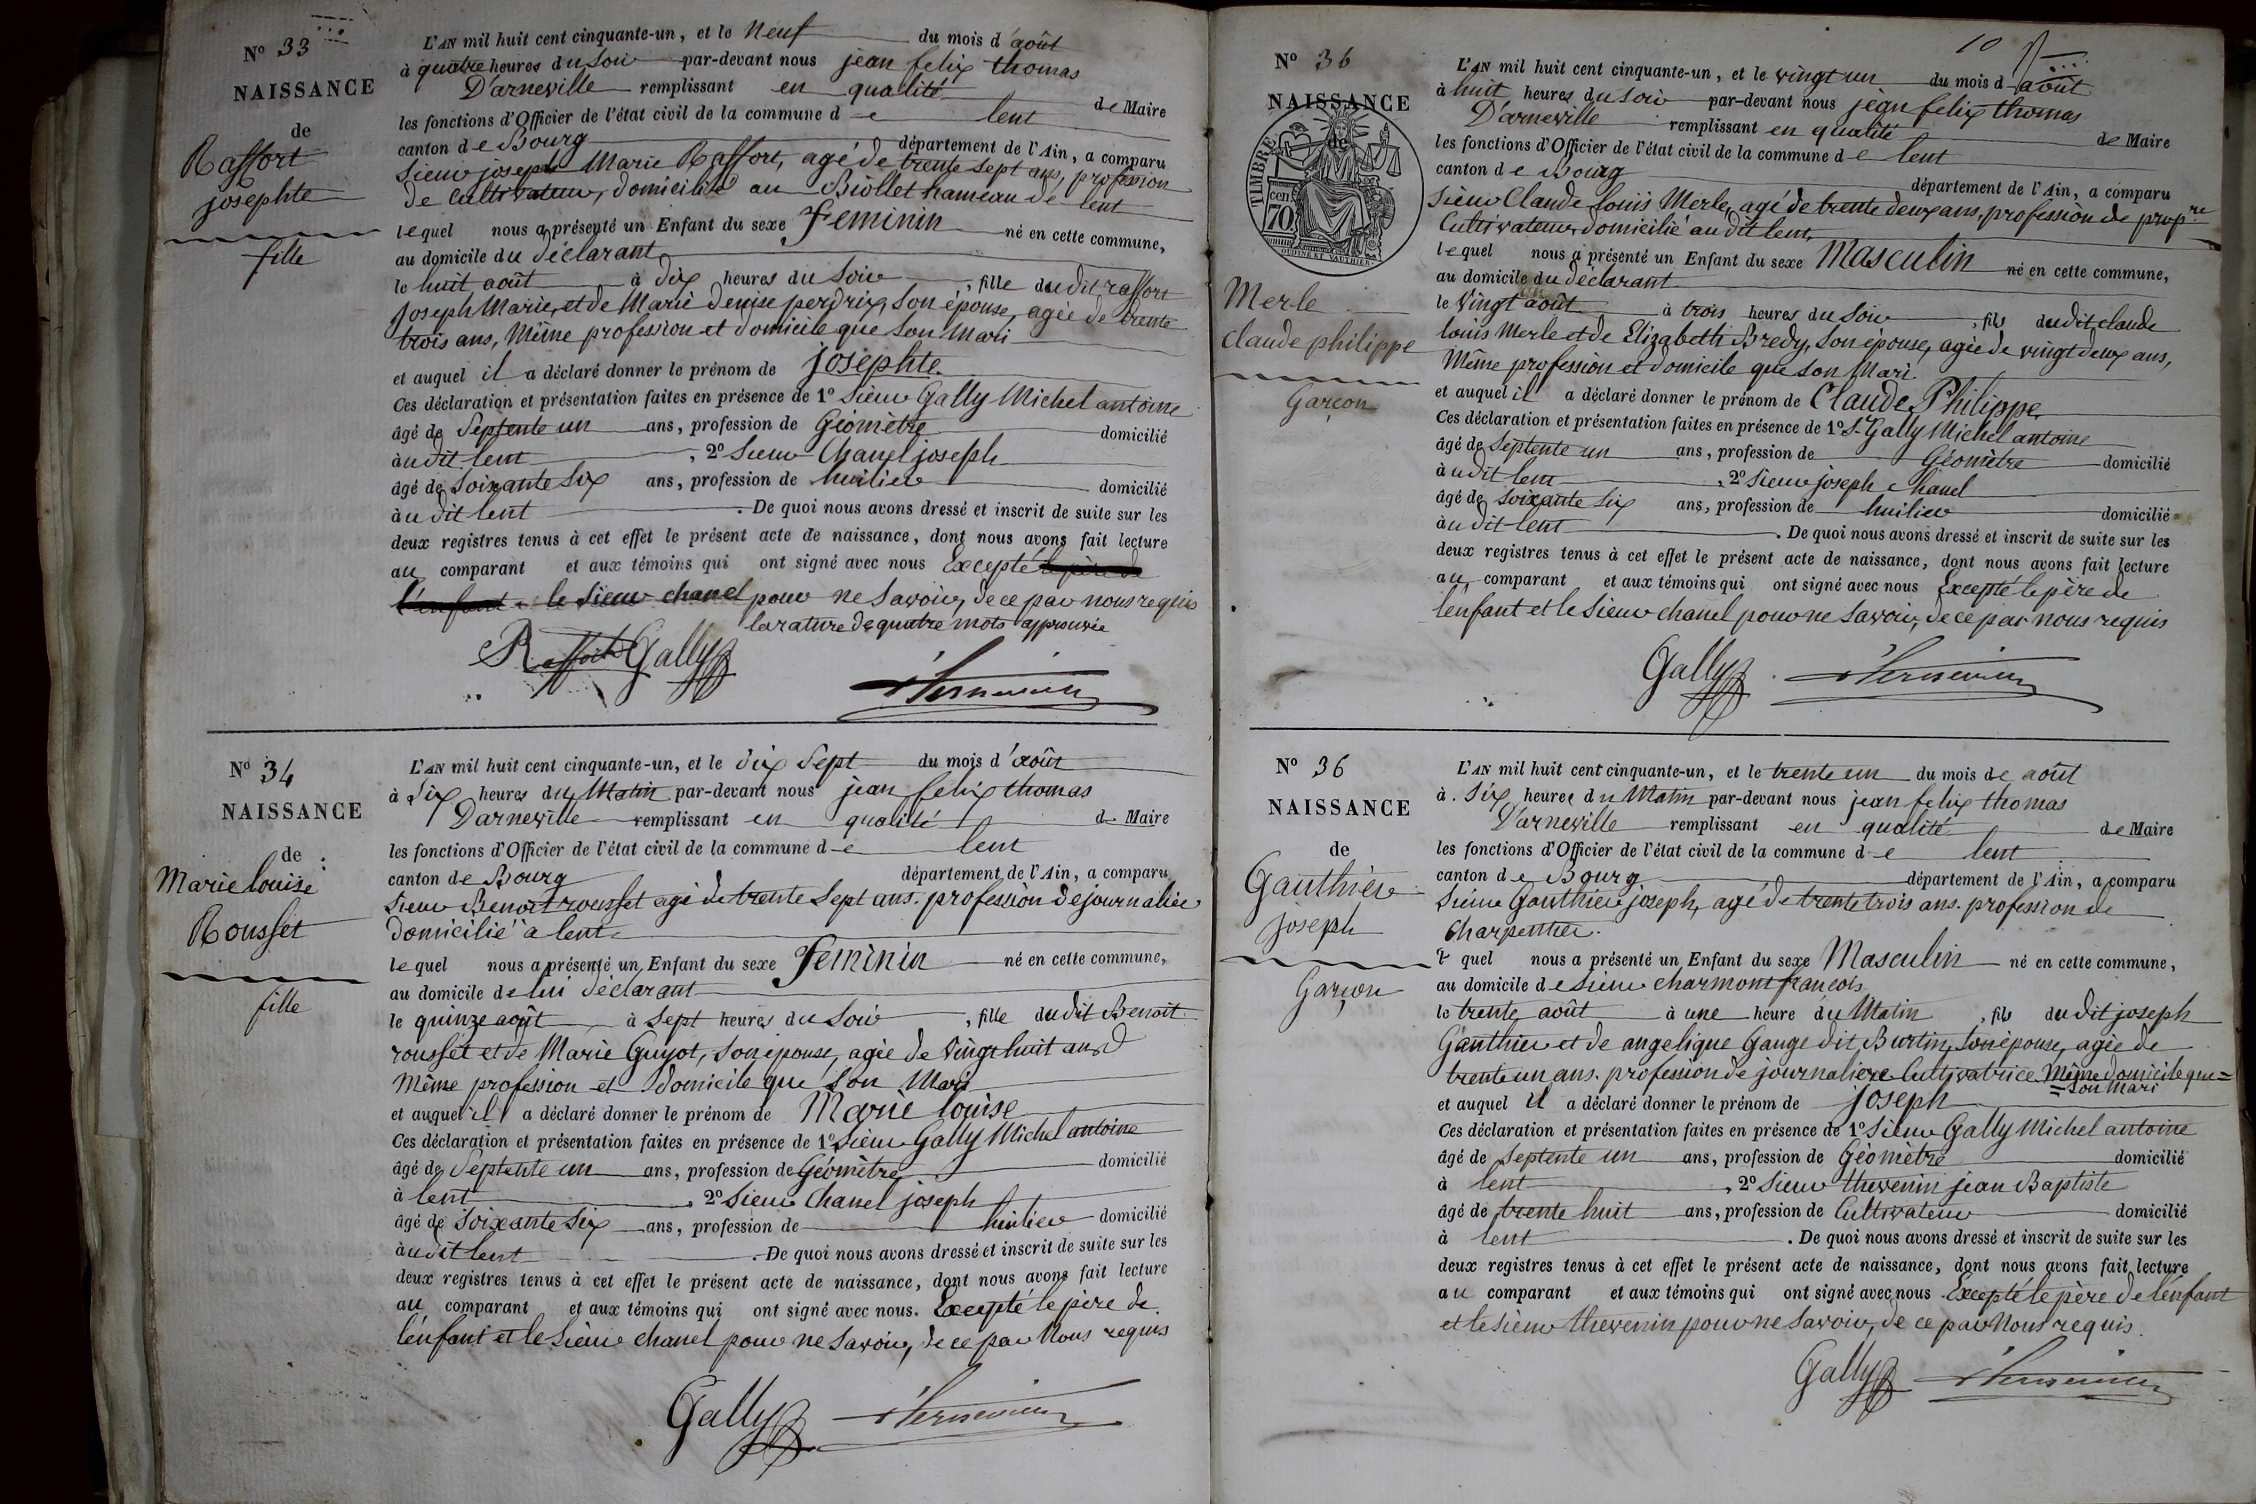 N° 33
NAISSANCE
de
Raffort
josephte
fille
L'AN mil huit cent cinquante-un, et le neuf du mois d'août
à quatre heures du soir par-devant nous jean felix thomas
D'arneville remplissant en qualité de Maire
les fonctions d'Officier de l'état civil de la commune de lent
canton de Bourg département de l'Ain, a comparu
Sieur joseph Marie Raffort, agé de trente sept ans, profession
de Cultivateur, domicilié au Biollet hameau de lent
lequel nous a présenté un Enfant du sexe Feminin né en cette commune,
au domicile du déclarant
le huit août à dix heures du soir, fille du dit raffort
joseph Marie, et de Marie denise perdrix, son épouse, agée de trente
trois ans, Même profession et domicile que son Mari
et auquel il a déclaré donner le prénom de josephte.
Ces déclaration et présentation faites en présence de 1° Sieur Gally Michel antoine
âgé de Septente un ans, profession de Géomètre domicilié
àu dit lent, 2° Sieur Chanel joseph
âgé de soixante six ans, profession de huilier domicilié
àu dit lent. De quoi nous avons dressé et inscrit de suite sur les
deux registres tenus à cet effet le présent acte de naissance, dont nous avons fait lecture
au comparant et aux témoins qui ont signé avec nous Excepté le père de
l'enfant le Sieur chanel pour ne Savoir, de ce par nous requis
la rature de quatre mots approuvée
Raffort Gally
N° 34
NAISSANCE
de
Marie louise
Rousset
fille
L'AN mil huit cent cinquante-un, et le dix sept du mois d'août
à six heures du Matin par-devant nous jean felix thomas
D'arneville remplissant en qualité de Maire
les fonctions d'Officier de l'état civil de la commune de lent
canton de Bourg département de l'Ain, a comparu
Sieur Benoît rousset agé de trente sept ans. profession de journalier
domicilié à lent
lequel nous a présenté un Enfant du sexe Feminin né en cette commune,
au domicile de lui déclarant
le quinze août à sept heures du soir, fille du dit Benoit
rousset et de Marie Guyot, son épouse, agée de vingt huit ans
Même profession et domicile que son Mari
et auquel il a déclaré donner le prénom de Marie louise
Ces déclaration et présentation faites en présence de 1° Sieur Gally Michel antoine
âgé de Septente un ans, profession de Géomètre domicilié
à lent, 2° Sieur Chanel joseph
âgé de soixante six ans, profession de huilier domicilié
àu dit lent. De quoi nous avons dressé et inscrit de suite sur les
deux registres tenus à cet effet le présent acte de naissance, dont nous avons fait lecture
au comparant et aux témoins qui ont signé avec nous. Excepté le père de
l'enfant et le Sieur chanel pour ne Savoir, de ce par Nous requis
Gally
10
N° 36
NAISSANCE
de
TIMBRE
70 cen
OUDINE ET VAUTHIER
Merle
claude philippe
Garçon
L'AN mil huit cent cinquante-un, et le vingt un du mois d août
à huit heures du soir par-devant nous jean felix thomas
D'arneville remplissant en qualité de Maire
les fonctions d'Officier de l'état civil de la commune de lent
canton de Bourg département de l'Ain, a comparu
Sieur Claude louis Merle, agé de trente deux ans, profession de propre
Cultivateur, domicilié au dit lent,
lequel nous a présenté un Enfant du sexe Masculin né en cette commune,
au domicile du déclarant
le vingt août à trois heures du soir, fils du dit claude
louis Merle et de Elizabeth Bredy, son épouse, agée de vingt deux ans,
Même profession et domicile que son Mari.
et auquel il a déclaré donner le prénom de Claude Philippe
Ces déclaration et présentation faites en présence de 1° Sr Gally Michel antoine
âgé de Septente un ans, profession de Géomètre domicilié
à u dit lent, 2° Sieur joseph chanel
âgé de soixante six ans, profession de huilier domicilié
àu dit lent. De quoi nous avons dressé et inscrit de suite sur les
deux registres tenus à cet effet le présent acte de naissance, dont nous avons fait lecture
au comparant et aux témoins qui ont signé avec nous Excepté le père de
l'enfant et le Sieur chanel pour ne Savoir, de ce par nous requis
Gally
N° 36
NAISSANCE
de
Gauthier
joseph
Garçon
L'AN mil huit cent cinquante-un, et le trente un du mois de août
à six heures du Matin par-devant nous jean felix thomas
D'arneville remplissant en qualité de Maire
les fonctions d'Officier de l'état civil de la commune de lent
canton de Bourg département de l'Ain, a comparu
Sieur Gauthier joseph, agé de trente trois ans. profession de
charpentier.
lequel nous a présenté un Enfant du sexe Masculin né en cette commune,
au domicile de sieur charmont francois
le trente août à une heure du Matin, fils du dit joseph
Gauthier et de angelique Gauge dit Burtin, son épouse, agée de
trente un ans. profession de journaliere Cultivatrice Même domicile que =
= son mari
et auquel il a déclaré donner le prénom de joseph
Ces déclaration et présentation faites en présence de 1° Sieur Gally Michel antoine
âgé de Septente un ans, profession de Géomètre domicilié
à lent, 2° Sieur thevenin jean Baptiste
âgé de trente huit ans, profession de Cultivateur domicilié
à lent. De quoi nous avons dressé et inscrit de suite sur les
deux registres tenus à cet effet le présent acte de naissance, dont nous avons fait lecture
au comparant et aux témoins qui ont signé avec nous Excepté le père de l'enfant
et le Sieur thevenin pour ne Savoir, de ce par Nous requis.
Gally